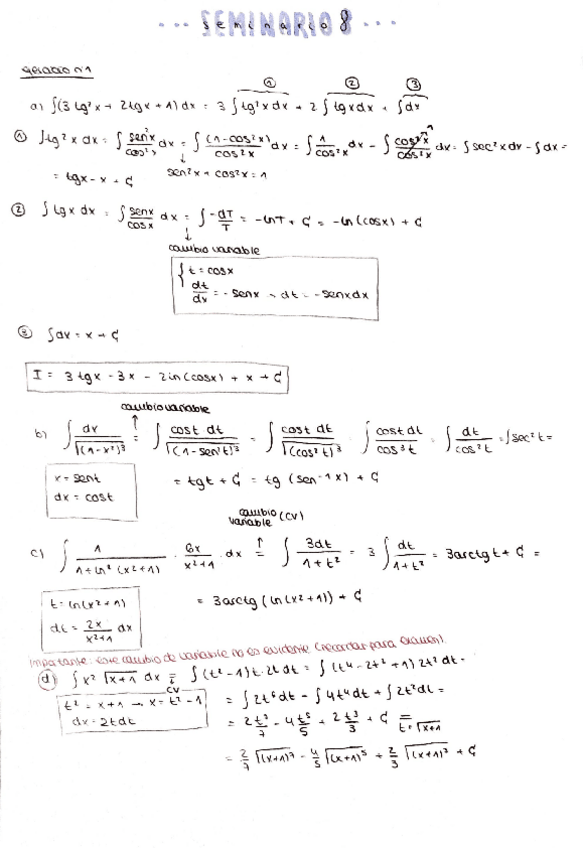 ... SEMINARIO 8 ...
seminario
ejercicio n1
① ② ③
a) ∫(3 tg²x + 2tgx + 1) dx = 3 ∫tg²x dx + 2 ∫tgx dx + ∫dx
① ∫tg²x dx = ∫ sen²x/cos²x dx = ∫ (1-cos²x)/cos²x dx = ∫ 1/cos²x dx - ∫ cos²x/cos²x dx = ∫sec²x dx - ∫dx =
sen²x + cos²x = 1
= tgx - x + C
② ∫tgx dx = ∫ senx/cosx dx = ∫ -dT/T = -lnT + C = -ln(cosx) + C
cambio variable
t = cosx
dt/dx = -senx → dt = -senxdx
③ ∫dx = x + C
I = 3tgx - 3x - 2ln(cosx) + x + C
cambio variable
b) ∫ dx/√(1-x²)³ = ∫ cost dt/√(1-sen²t)³ = ∫ cost dt/√(cos²t)³ ∫ cost dt/cos³t = ∫ dt/cos²t = ∫sec²t =
x = sent
dx = cost
= tgt + C = tg (sen⁻¹x) + C
cambio variable (CV)
c) ∫ 1/(1+ln²(x²+1)) · 6x/(x²+1) · dx = ∫ 3dt/(1+t²) = 3 ∫ dt/(1+t²) = 3arctgt + C =
t = ln(x²+1)
dt = 2x/(x²+1) dx
= 3arctg (ln(x²+1)) + C
Importante: este cambio de variable no es evidente (recordar para examen).
d) ∫x² √(x+1) dx = ∫(t²-1)t·2t dt = ∫(t⁴-2t²+1) 2t² dt =
CV
t² = x+1 → x = t²-1
dx = 2tdt
= ∫2t⁶dt - ∫4t⁴dt + ∫2t²dt =
= 2 t⁷/7 - 4 t⁵/5 + 2 t³/3 + C =
t = √(x+1)
= 2/7 √(x+1)⁷ - 4/5 √(x+1)⁵ + 2/3 √(x+1)³ + C